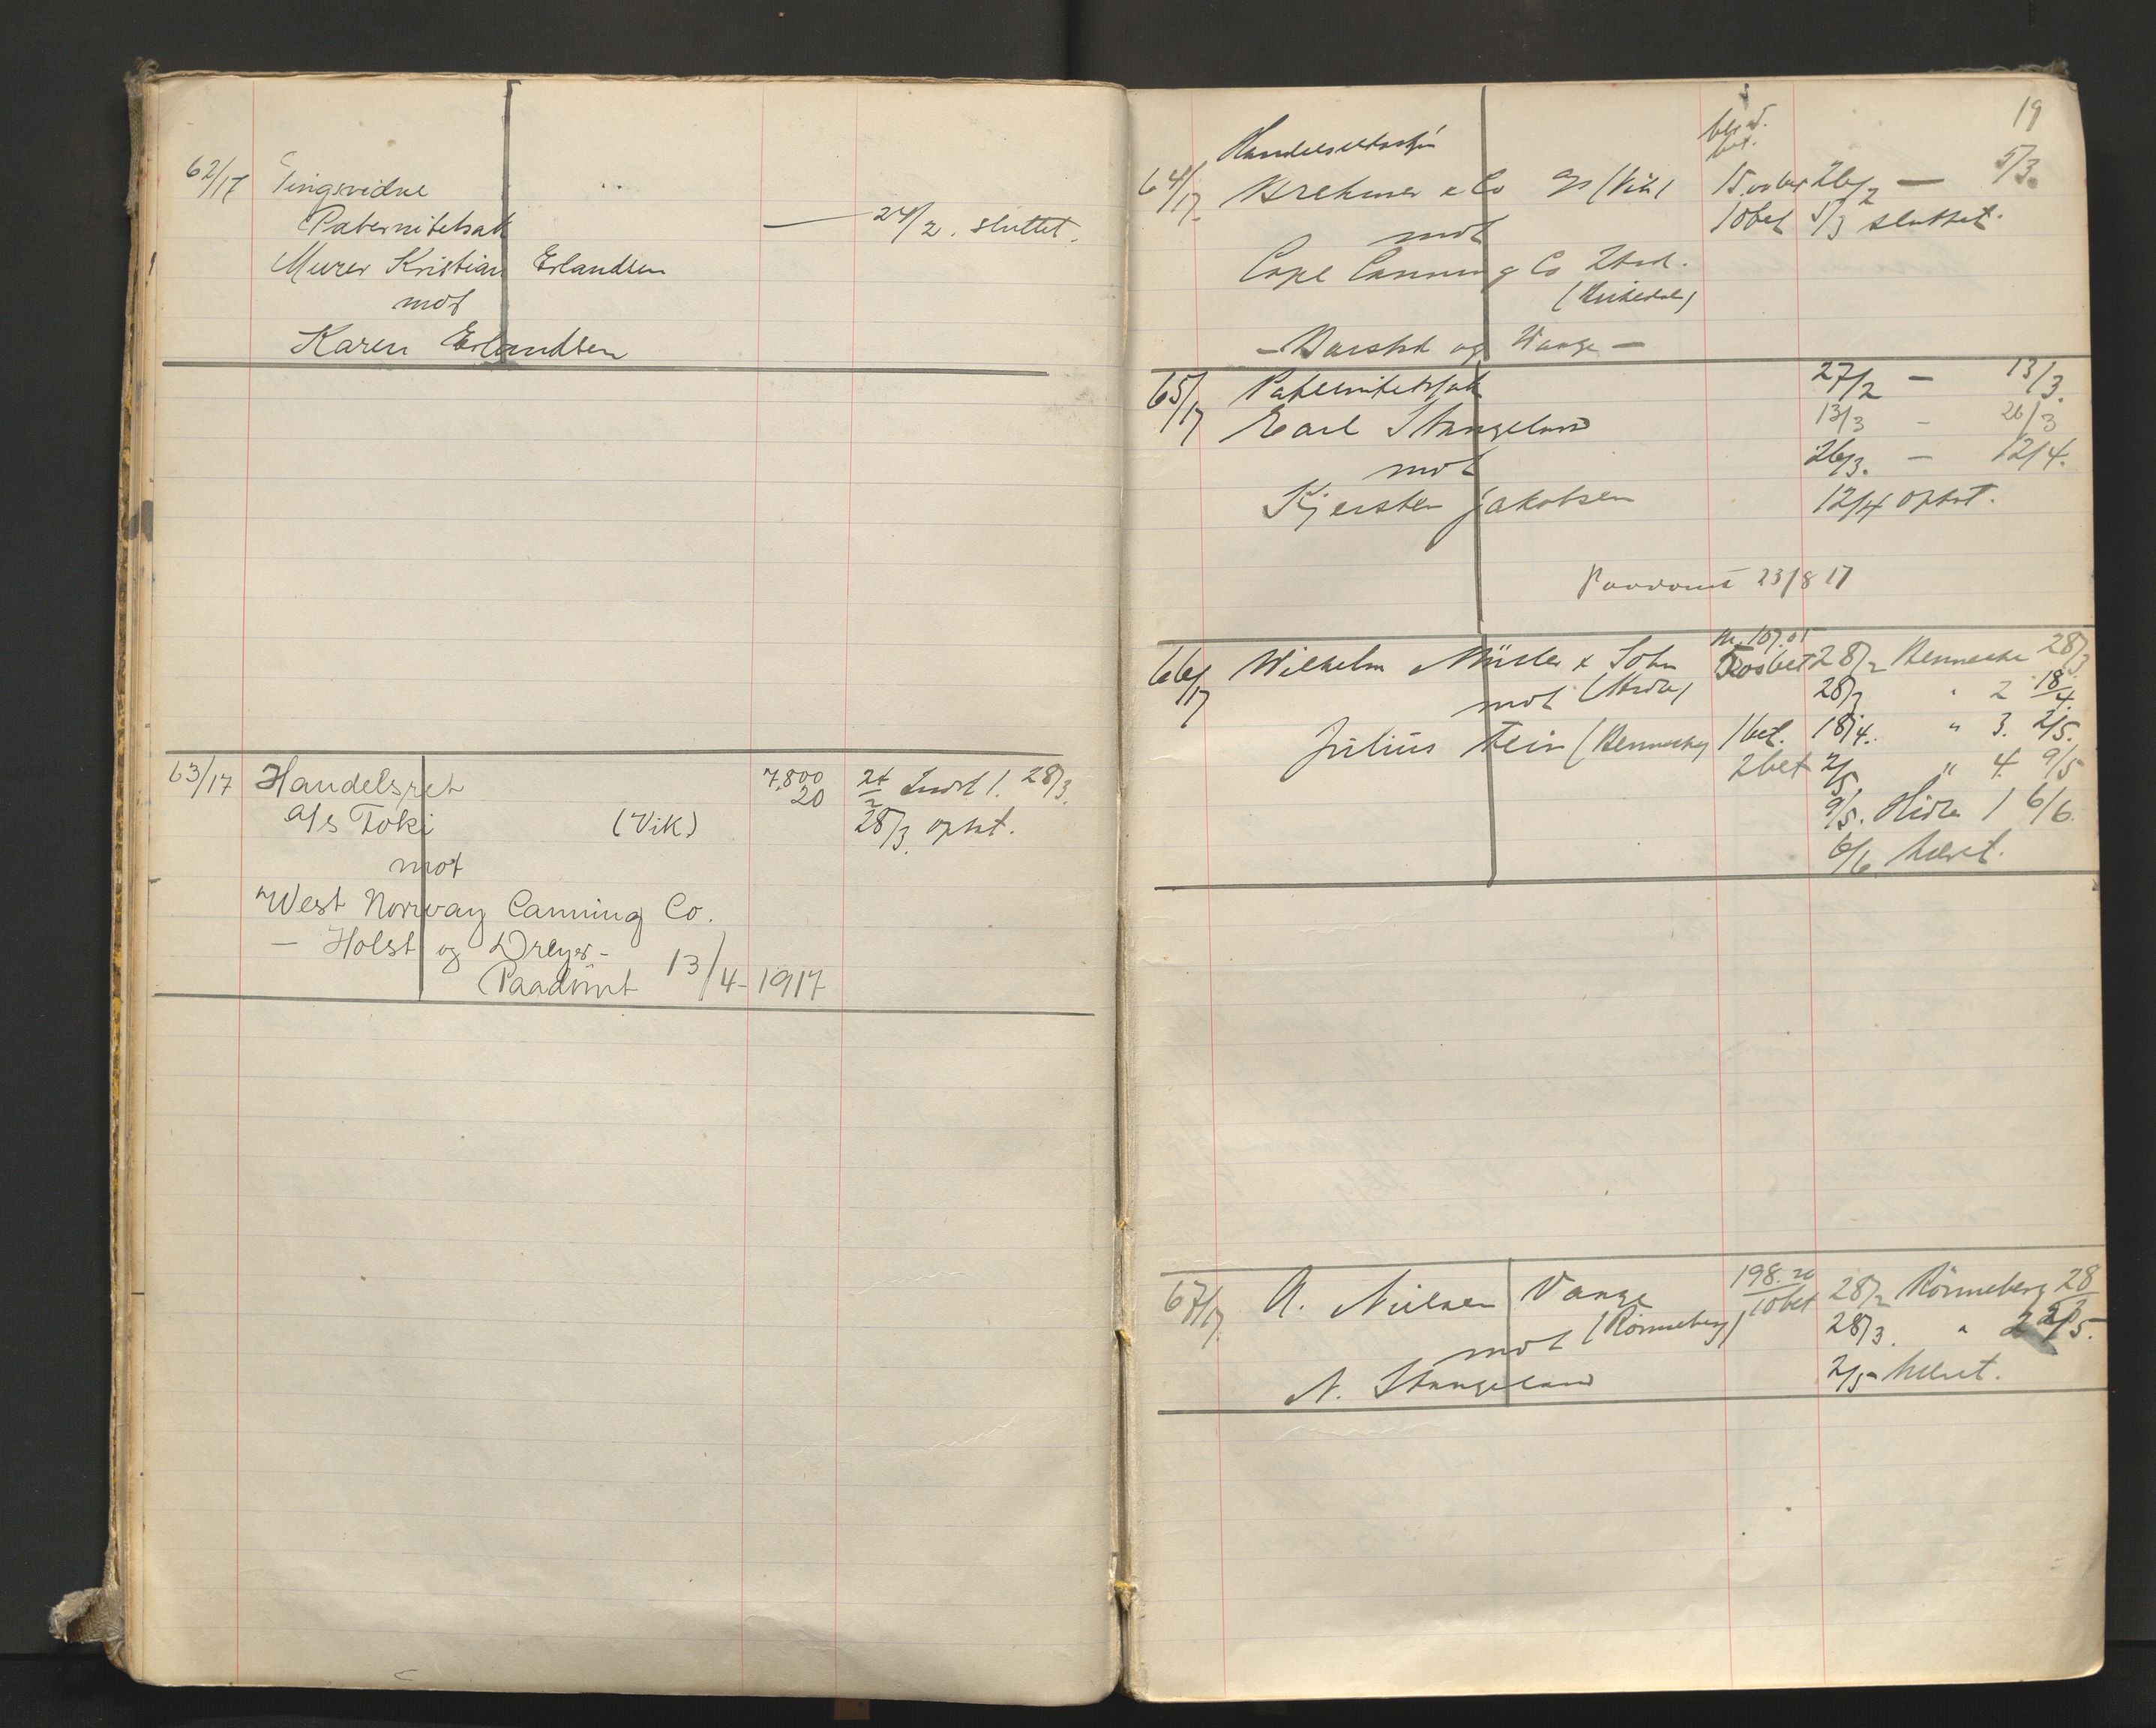 62/17 Tingsvidne
Paternitetsak — 24/2. sluttet.
Murer Kristian Erlandsen
mot
Karen Erlandsen
63/17 Handelsret 7,800 24/2 1. 28/3.
A/s Toki (Vik) 20 28/3. optat.
mot
West Norway Canning Co.
— Holst og Dreyer —
Paadømt 13/4-1917
19
64/17. & Co A/s (Vik) 26/2 — 5/3.
mot 10bet 5/3 sluttet.
Cape Canning Co Ltd.
— og Vange —
65/17 Paternitetssak 27/2 — 13/3.
Earl Stangeland 13/3 — 26/3
mot 26/3. — 12/4.
Kjersten Jakobsen 12/4 optat.
Paadømt 23/8 17
66/17 Wilhelm Müller & Sohn 28/2 Benneche 28/3
mot 28/3 " 2 18/4.
Julius Fein (Bennechey) 1bet. 18/4. " 3. 2/5.
2bet 2/5 " 4. 9/5
9/5. Hidle 1 6/6.
6/6 hævet.
67/17. A. Nielsen Vange 198.20 28/2 Rönneberg 28/3
mot (Rönneberg) 10bet 28/3. " 2 2/5.
N. Stangeland 2/5 hævet.